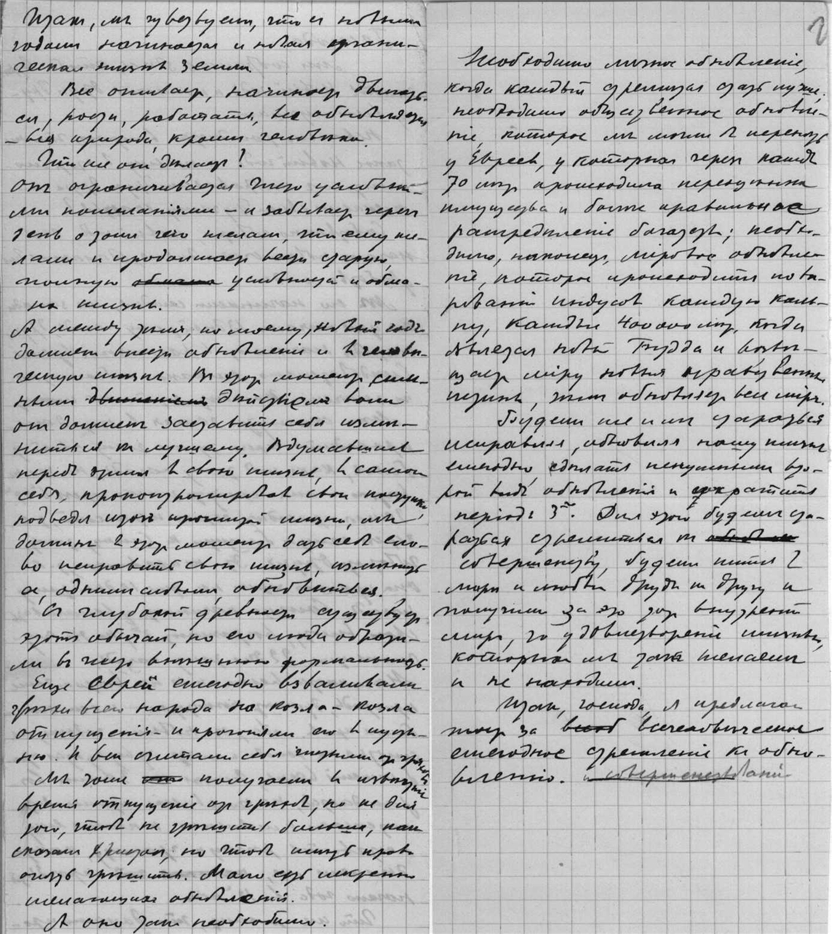 Итак, мы чувствуем, что с новым
годом начинается и новая органи-
ческая жизнь земли
Все оживает, начинает двигать-
ся, расти, работать, все обновляется
– вся природа, кроме человека.
Что же он делает?
он ограничивается чисто условны-
ми пожеланиями – и забывает через
день о том чего желал, что ему же-
лали и продолжает вести старую,
полную условностей и обма-
на жизнь.
А между тем, по моему, новый годъ
должен внести обновление и в челове-
ческую жизнь. В этот момент силь-
ным действием воли
он должен заставить себя изме-
ниться к лучшему. Вдумавшись
передъ этим в свою жизнь, в самого
себя, проконтролировав свои поступки
подведя итог прошлой жизни, мы
должны в этот момент дать себе сло-
во исправить свою жизнь, изменить-
ся, одним словом обновиться.
С глубокой древности существует
этот обычай, но его люди обрати-
ли в чисто внешнюю формальность.
Еще Евреи ежегодно взваливали
грехи всего народа на козла – козла
отпущения – и прогоняли его в пусты-
ню. И все считали себя чистыми от грехов
Мы тоже получаем в известное
время отпущение от грехов, но не для
того, чтоб не грешить больше, как
сказал Христос, но чтоб иметь право
опять грешить. Мало есть искренно
желающих обновления.
А оно так необходимо.
2
Необходимо личное обновление,
когда каждый стремился стать лучше,
необходимо общественное обновле-
ние, которое мы можем видеть
у Евреев, у которых через каждые
70 лет происходила передача
имущества и более правильное
распределение богатств; необхо-
димо, наконец, мировое обновле-
ние, которое происходит по ве-
рованию индусов каждую каль-
пу, каждые 4000000 лет, когда
являлся новый Будда и возве-
щает миру новыя нравственныя
истины, этим обновляет весь мир.
Будем же и мы стараться
исправлять, обновлять нашу жизнь
ежегодно, сделать ненужным вто-
рой видъ обновления и сократить
период 3й. Для этого будем ста-
раться стремиться к
совершенству, будем жить в
мире и любви друг к другу и
получим за это тот внутренний
мир, то удовлетворение жизнью,
которых мы так желаем
и не находим.
Итак, господа, я предлагаю
тост за всечеловеческое
ежегодное стремление к обно-
влению.